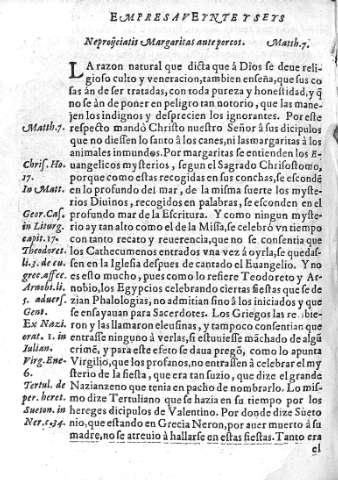 EMPRESA VEYNTE Y SEYS
Neproijciatis Margaritas ante porcos. Matth. 7.
LA razon natural que dicta que à Dios se deue reli-
gioso culto y veneracion, tambien enseña, que sus co-
sas àn de ser tratadas, con toda pureza y honestidad, y q̃
no se àn de poner en peligro tan notorio, que las mane-
jen los indignos y desprecien los ignorantes. Por este
Matth. 7. respecto mandò Christo nuestro Señor â sus dicipulos
que no diessen lo santo à los canes, ni las margaritas à los
animales inmundos. Por margaritas se entienden los E-
Chris. Ho. uangelicos mysterios, segun el Sagrado Chrisostomo,
17. porque como estas recogidas en sus conchas, se escondẽ
Io Matt. en lo profundo del mar, de la misma suerte los myste-
rios Diuinos, recogidos en palabras, se esconden en el
Geor. Cas. profundo mar de la Escritura. Y como ningun myste-
in Liturg. rio ay tan alto como el de la Missa, se celebrò vn tiempo
capit. 17. con tanto recato y reuerencia, que no se consentia que
Theodoret. los Cathecumenos entrados vna vez à oyrla, se quedas-
li. 3. de cu. sen en la Iglesia despues de cantado el Euangelio. Y no
grec. affec. es esto mucho, pues como lo refiere Teodoreto y Ar-
Arnobi. li. nobio, los Egypcios celebrando ciertas fiestas que se de-
5. aduers. zian Phalologias, no admitian sino â los iniciados y que
Gent. se ensayauan para Sacerdotes. Los Griegos las
Ex Nazi. ron y las llamaron eleusinas, y tampoco consentian que
orat. 1. in entrasse ninguno à verlas, si estuuiesse mãchado de algũ
Iulian. crimẽ, y para este efeto se daua pregõ, como lo apunta
Virg. Ene- Virgilio, que los profanos, no entrassen â celebrar el my
6. sterio de la fiesta, que era tan suzio, que dize el grande
Tertul. de Nazianzeno que tenia en pacho de nombrarlo. Lo mis-
per. heret. mo dize Tertuliano que se hazia en su tiempo por los
Sueton. in hereges dicipulos de Valentino. Por donde dize Sueto
Ner. c. 34. nio, que estando en Grecia Neron, por auer muerto â su
madre, no se atreuio à hallarse en estas fiestas. Tanto era
el